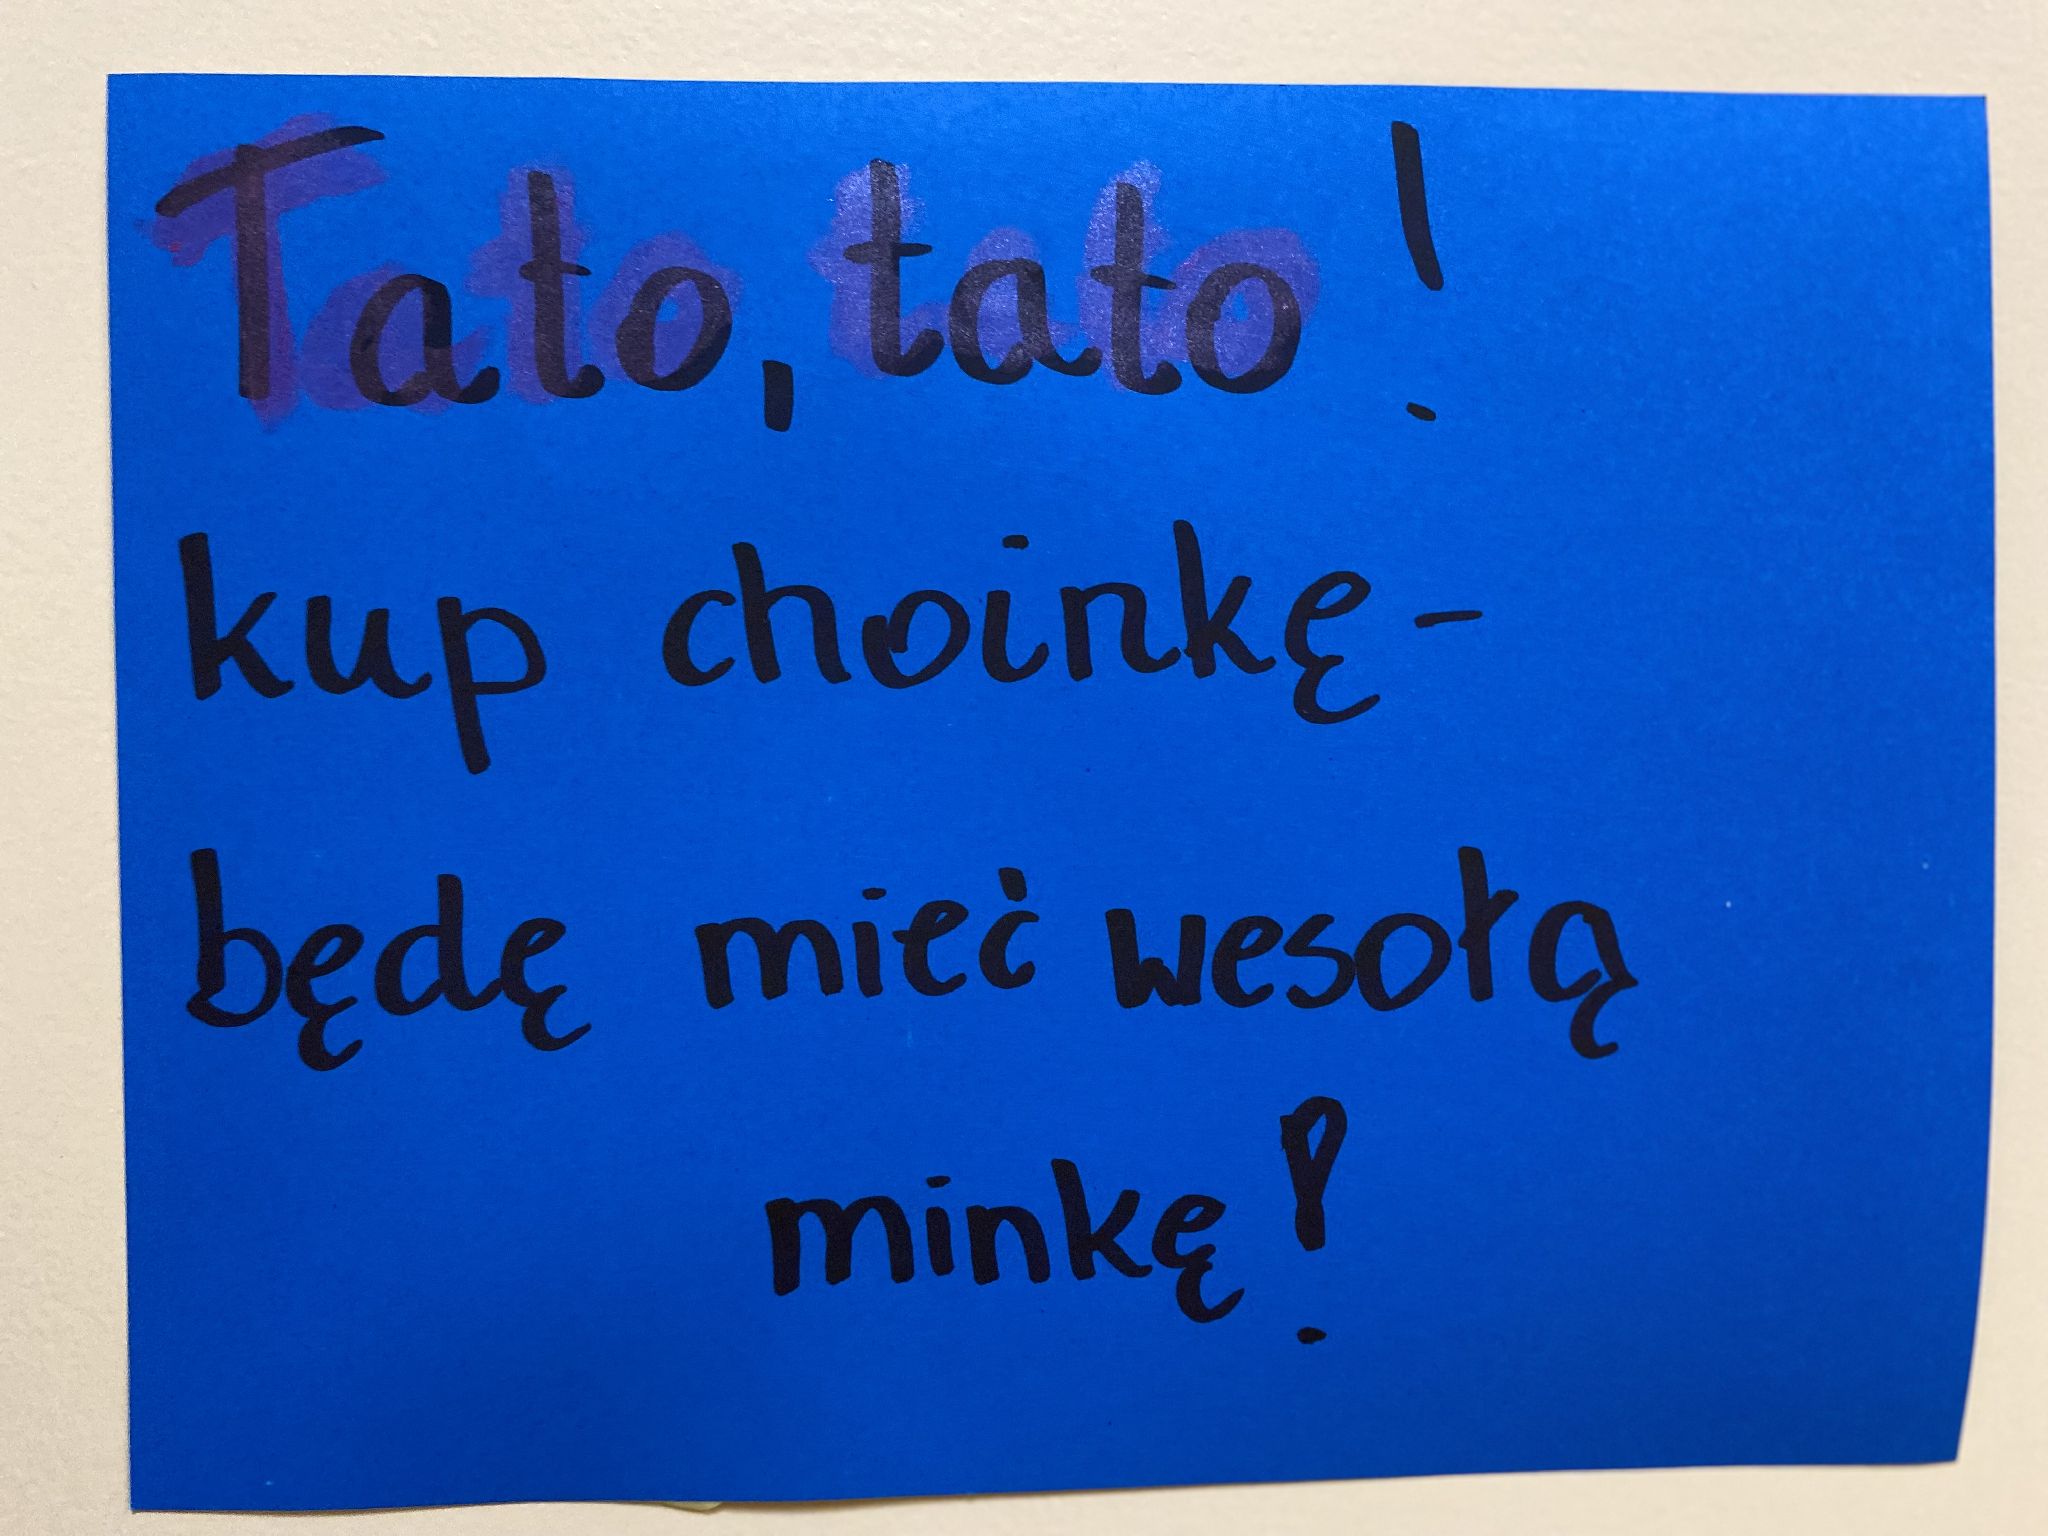 Tato, tato!
kup choinkę-
będę mieć wesołą
minkę!